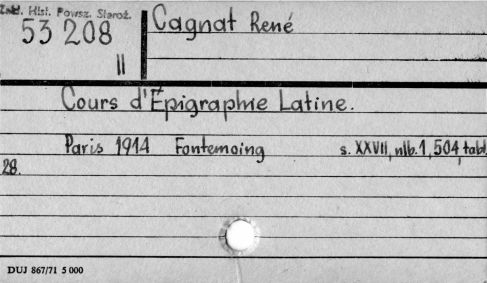 Zakł. Hist. Powsz. Staroż.
53 208
II
Cagnat René
Cours d'Épigraphie Latine.
Paris 1914 Fontemoing s. XXVII, nlb. 1, 504, tabl.
28.
DUJ 867/71 5 000